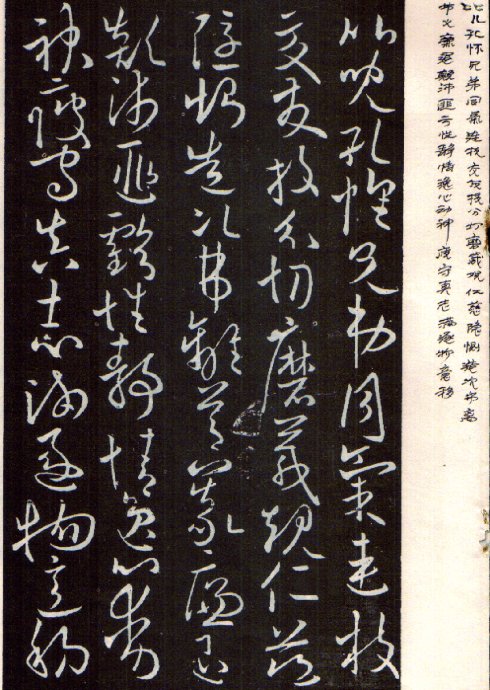 比儿孔怀兄弟同氣連枝交友投分切磨箴規仁慈隐恻造次弗离
节义廉退颠沛匪亏性静情逸心动神疲守真志满逐物意移
比兒孔懷兄弟同氣連枝
交友投分切磨箴規仁慈
隱惻造次弗離節義廉退
顛沛匪虧性靜情逸心動
神疲守真志滿逐物意移